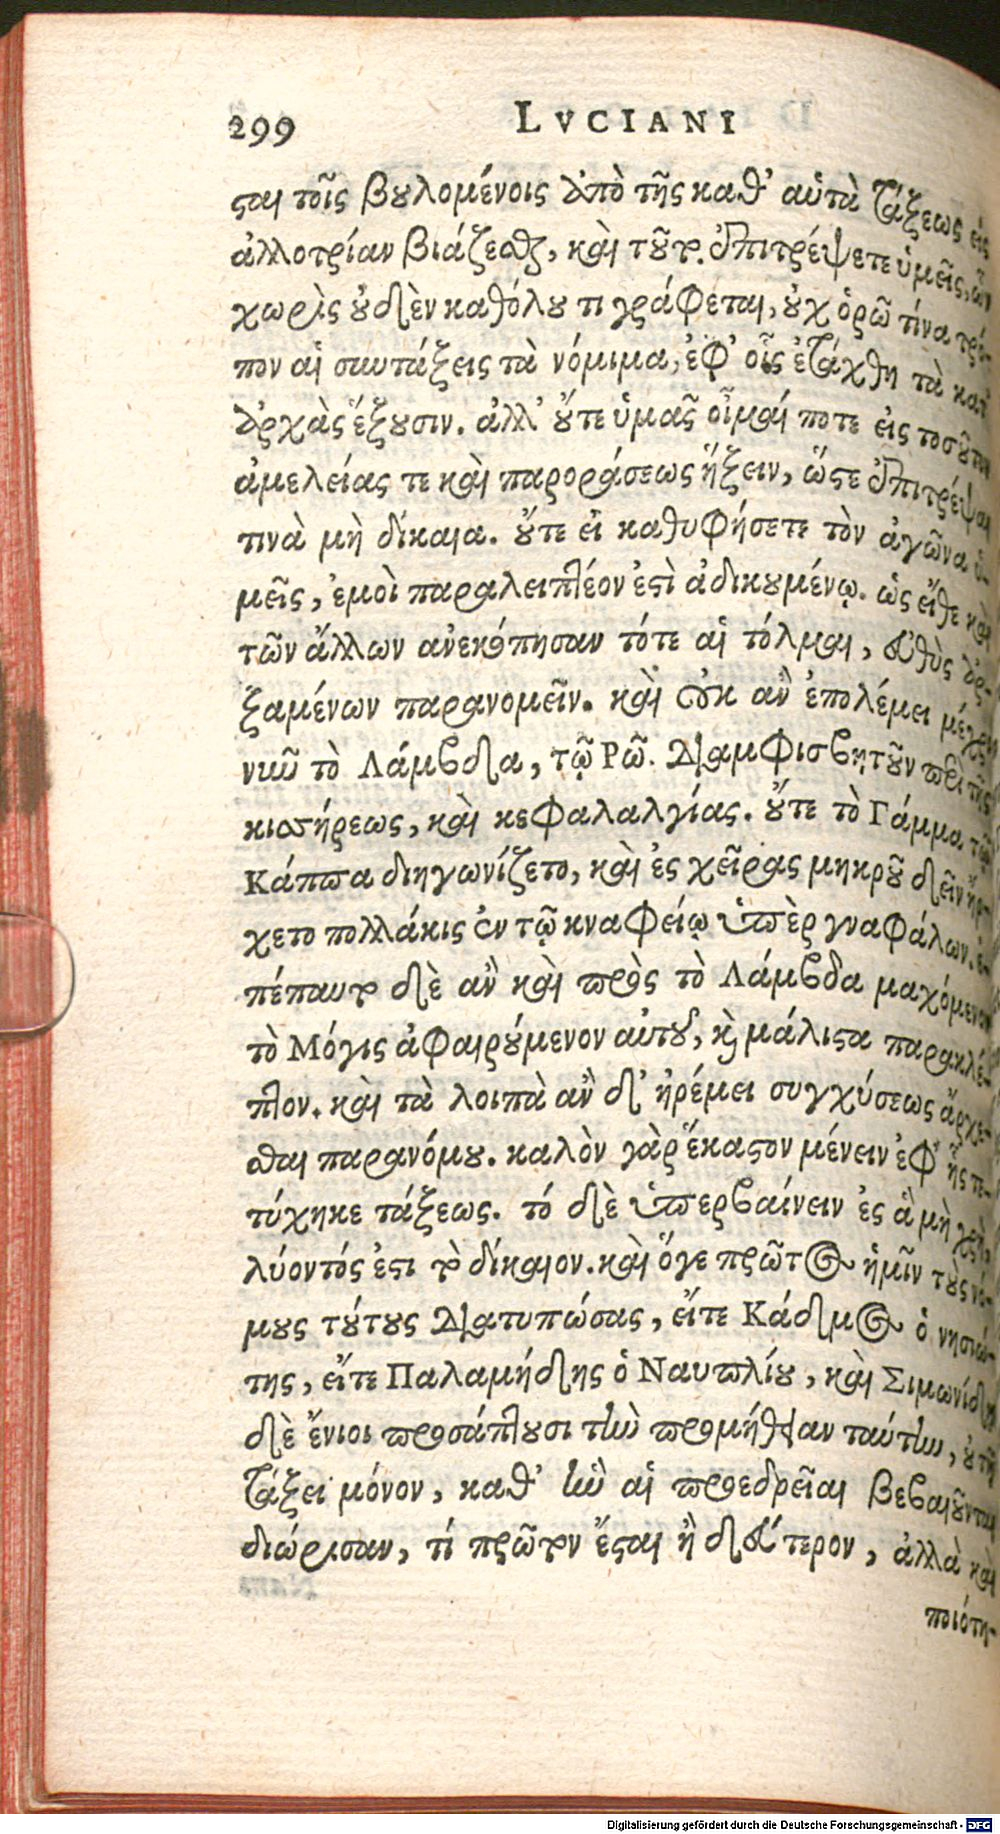 299 LVCIANI
ται τοῖς βουλομένοις ἀπὸ τῆς καθ’ αὑτὰ τάξεως εἰς
ἀλλοτρίαν βιάζεσθαι, καὶ τοῦτο ἐπιτρέψετε ὑμεῖς, ὧν
χωρὶς οὐδὲν καθόλου τι γράφεται, οὐχ ὁρῶ τίνα τρό-
πον αἱ συντάξεις τὰ νόμιμα, ἐφ’ οἷς ἐτάχθη τὰ κατ’
ἀρχὰς ἕξουσιν. ἀλλ’ οὔτε ὑμᾶς οἶμαί ποτε εἰς τοσοῦτον
ἀμελείας τε καὶ παροράσεως ἥξειν, ὥστε ἐπιτρέψαι
τινὰ μὴ δίκαια. οὔτε εἰ καθυφήσετε τὸν ἀγῶνα ὑ-
μεῖς, ἐμοὶ παραλειπτέον ἐστὶ ἀδικουμένῳ. ὡς εἴθε καὶ
τῶν ἄλλων ἀνεκόπησαν τότε αἱ τόλμαι, εὐθὺς ἀρ-
ξαμένων παρανομεῖν. καὶ οὐκ ἂν ἐπολέμει μέχρι
νῦν τὸ Λάμβδα, τῷ Ρῶ. διαμφισβητοῦν περὶ τῆς
κισσήρεως, καὶ κεφαλαλγίας. οὔτε τὸ Γάμμα τῷ
Κάππα διηγωνίζετο, καὶ ἐς χεῖρας μηκροῦ δεῖν ἤρ-
χετο πολλάκις ἐν τῷ κναφείῳ ὑπὲρ γναφάλων. ἐ-
πέπαυτο δὲ ἂν καὶ πρὸς τὸ Λάμβδα μαχόμενον
τὸ Μόγις ἀφαιρούμενον αὐτοῦ, καὶ μάλιστα παρακλέ-
πτον. καὶ τὰ λοιπὰ ἂν δ’ ἠρέμει συγχύσεως ἄρχε-
σθαι παρανόμου. καλὸν γὰρ ἕκαστον μένειν ἐφ’ ἧς τε-
τύχηκε τάξεως. τό δὲ ὑπερβαίνειν ἐς ἃ μὴ χρὴ,
λύοντός ἐστι τὸ δίκαιον. καὶ ὅγε πρῶτος ἡμῖν τοὺς νό-
μους τούτους διατυπώσας, εἴτε Κάδμος ὁ νησιώ-
της, εἴτε Παλαμήδης ὁ Ναυπλίου, καὶ Σιμωνίδῃ
δὲ ἔνιοι προσάπτουσι τὴν προμήθειαν ταύτην, οὐ τῇ
τάξει μόνον, καθ’ ἣν αἱ προεδρεῖαι βεβαιοῦνται
διώρισαν, τί πρῶτον ἔσται ἢ δεύτερον, ἀλλὰ καὶ
ποιότη-
Digitalisierung gefördert durch die Deutsche Forschungsgemeinschaft - DFG